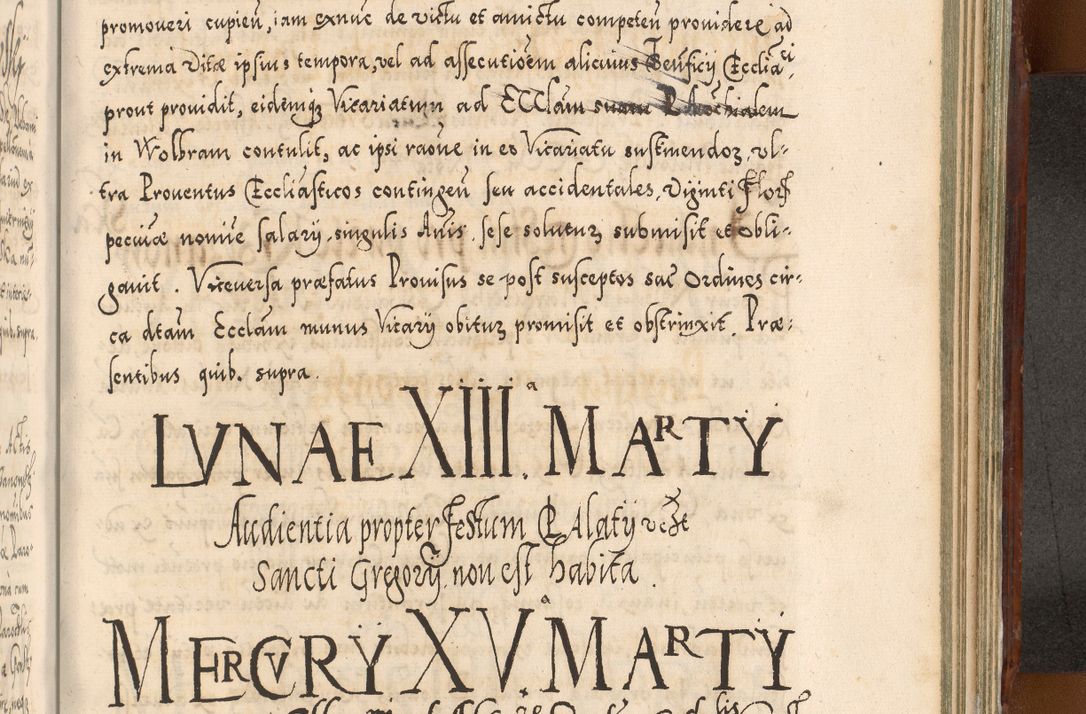 promoveri cupien, iam exnuc de victu et amictu competen providere ad
extrema vitæ ipsius tempora, vel ad assecutioem alicuius Beneficij Eccliaci,
prout providit, eidemq Vicariatum ad Ecclam
in Wolbram contulit, ac ipsi raone in eo Vicariatu sustinendoz, ul-
tra Proventus Ecclasticos contingen seu accidentales, Viginti Flor
pecuiæ nomie salarij, singulis Anis, sese soluturz submisit et obli-
gavit. Viceversa præfatus Provisus se post susceptos sac Ordines cir-
ca dtam Ecclam munus Vicarij obiturz promisit et obstrinxit. Præ-
sentibus quib. supra.
LVNAE XIII.a MARTY
Audientia propter Festum
Sancti Gregorij non est habita.
MERCVRY XV.a MARTY